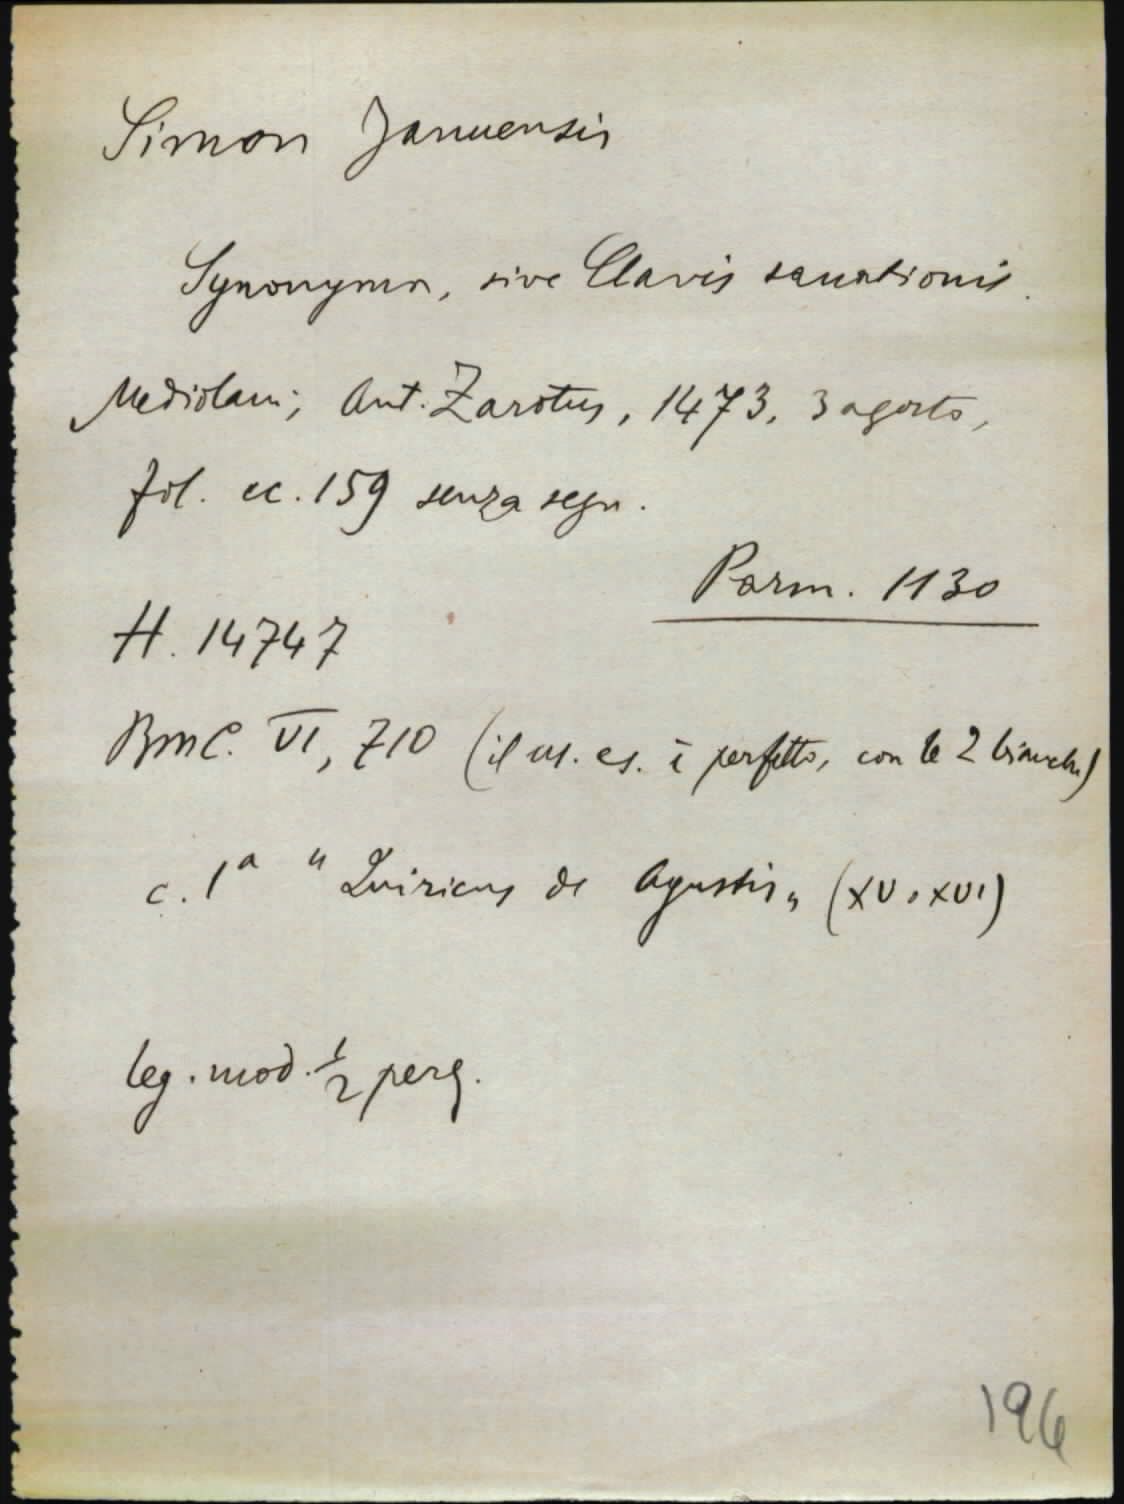 Simon Januensis
Synonyma, sive Clavis sanationis.
Mediolani, Ant. Zarotus, 1473, 3 agosto,
fol. cc. 159 senza segn.
Parm. 1130
H. 14747
BMC. VI, 710 (il ns. es. è perfetto, con le 2 bianche)
c. 1a "Quiricus de Agustis" (XV-XVI)
leg. mod. ½ perg.
196